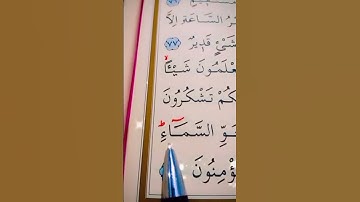 مْرُ السَّاعَةِ اِلَّا
شَيْءٍ قَدِيرٌ ﴿٧٧﴾
عْلَمُونَ شَيْـًٔا
كُمْ تَشْكُرُونَ
جَوِّ السَّمَٓاءِ ط
ؤْمِنُونَ